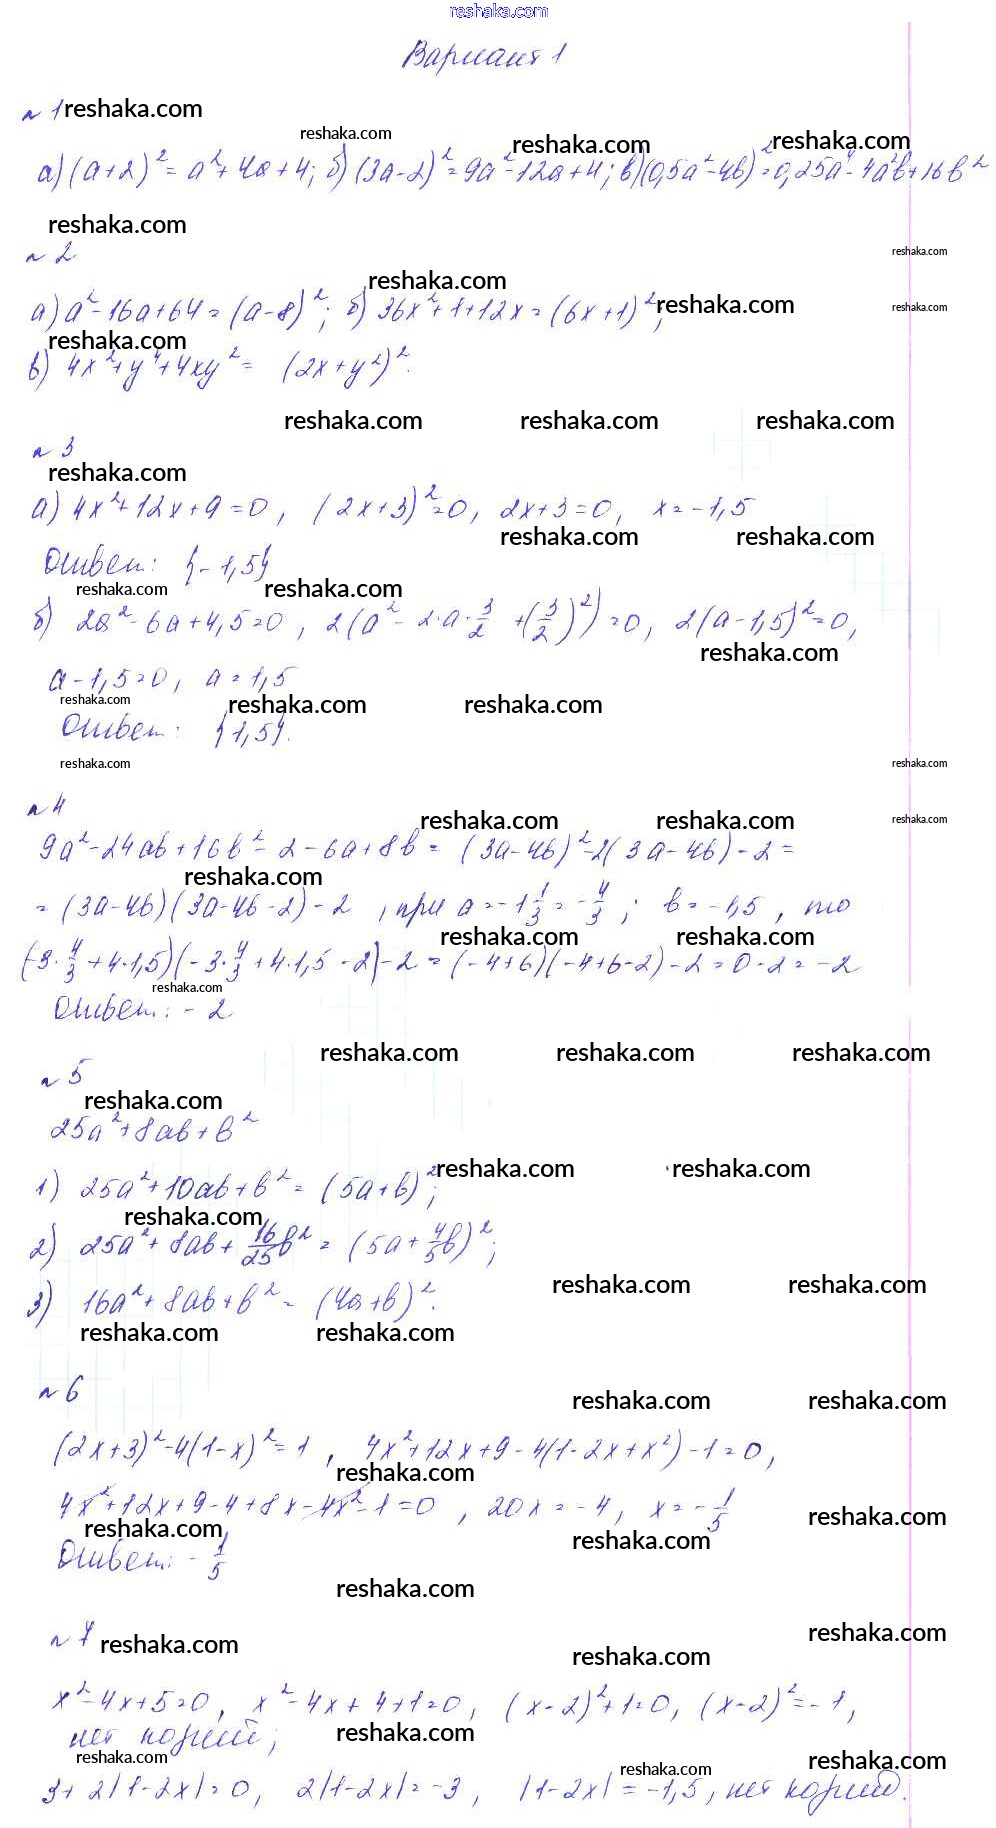 reshaka.com
Вариант 1
№ 1
reshaka.com
reshaka.com reshaka.com reshaka.com
а) (a+2)² = a²+4a+4; б) (3a-2)² = 9a²-12a+4; в) (0,5a²-4b)² = 0,25a⁴-4a²b+16b²
reshaka.com
№ 2
reshaka.com
reshaka.com reshaka.com reshaka.com
а) a²-16a+64 = (a-8)²; б) 36x²+1+12x = (6x+1)²;
reshaka.com
в) 4x²+y⁴+4xy² = (2x+y²)².
reshaka.com reshaka.com reshaka.com
№ 3
reshaka.com
а) 4x²+12x+9=0, (2x+3)²=0, 2x+3=0, x=-1,5
reshaka.com reshaka.com
Ответ: {-1,5}
reshaka.com reshaka.com
б) 2a²-6a+4,5=0, 2(a²-2·a·3/2+(3/2)²)=0, 2(a-1,5)²=0,
reshaka.com
a-1,5=0, a=1,5
reshaka.com reshaka.com reshaka.com
Ответ: {1,5}.
reshaka.com reshaka.com
№ 4
reshaka.com reshaka.com reshaka.com
9a²-24ab+16b²-2-6a+8b = (3a-4b)²-2(3a-4b)-2 =
reshaka.com
= (3a-4b)(3a-4b-2)-2, при a=-1 1/3=-4/3; b=-1,5, то
reshaka.com reshaka.com
(-3·4/3+4·1,5)(-3·4/3+4·1,5-2)-2 = (-4+6)(-4+6-2)-2=0-2=-2
reshaka.com
Ответ: -2
reshaka.com reshaka.com reshaka.com
№ 5
reshaka.com
25a²+8ab+b²
reshaka.com reshaka.com
1) 25a²+10ab+b² = (5a+b)²;
reshaka.com
2) 25a²+8ab+16/25b² = (5a+4/5b)²;
reshaka.com reshaka.com
3) 16a²+8ab+b² = (4a+b)².
reshaka.com reshaka.com
№ 6
reshaka.com reshaka.com
(2x+3)²-4(1-x)²=1, 4x²+12x+9-4(1-2x+x²)-1=0,
reshaka.com
4x²+12x+9-4+8x-4x²-1=0, 20x=-4, x=-1/5
reshaka.com reshaka.com reshaka.com
Ответ: -1/5
reshaka.com
№ 7
reshaka.com reshaka.com reshaka.com
x²-4x+5=0, x²-4x+4+1=0, (x-2)²+1=0, (x-2)²=-1,
reshaka.com
нет корней;
reshaka.com reshaka.com reshaka.com
3+2|1-2x|=0, 2|1-2x|=-3, |1-2x|=-1,5, нет корней.